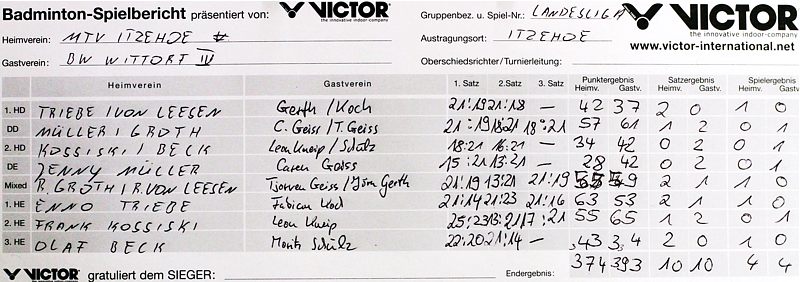 Badminton-Spielbericht präsentiert von: VICTOR the innovative indoor-company Gruppenbez. u. Spiel-Nr.: LANDESLIGA VICTOR the innovative indoor-company
Heimverein: MTV ITZEHOE Austragungsort: ITZEHOE www.victor-international.net
Gastverein: BW WITTORF IV Oberschiedsrichter/Turnierleitung:
Heimverein Gastverein 1. Satz 2. Satz 3. Satz Punktergebnis Heimv. Gastv. Satzergebnis Heimv. Gastv. Spielergebnis Heimv. Gastv.
1. HD TRIEBE / VON LEESEN Gerth / Koch 21:19 21:18 — 42 37 2 0 1 0
DD MÜLLER / GROTH C. Geiss / T. Geiss 21:19 18:21 18:21 57 61 1 2 0 1
2. HD KOSSISKI / BECK Leon Kneip / Schulz 18:21 16:21 — 34 42 0 2 0 1
DE JENNY MÜLLER Caren Geiss 15:21 13:21 — 28 42 0 2 0 1
Mixed R. GROTH / R. VON LEESEN Tjorven Geiss / Jörn Gerth 21:19 13:21 21:19 2 1 1 0
1. HE ENNO TRIEBE Fabian Koch 21:14 21:23 21:16 63 53 2 1 1 0
2. HE FRANK KOSSISKI Leon Kneip 25:23 13:21 17:21 55 65 1 2 0 1
3. HE OLAF BECK Moritz Schulz 22:20 21:14 — 43 34 2 0 1 0
VICTOR gratuliert dem SIEGER: Endergebnis: 374 393 10 10 4 4